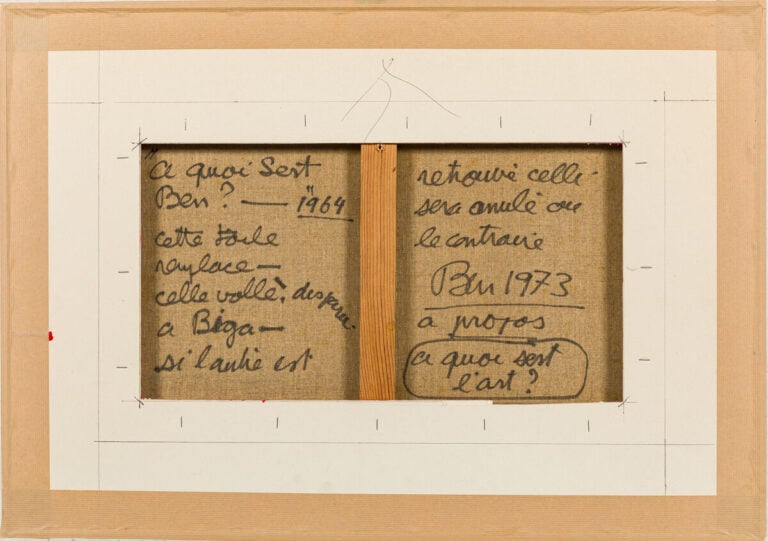 "a quoi Sert
Ben? — "1964
cette toile
remplace —
celle vollé, dispara-
a Biga —
si l'autre est
retrouvé celle-
sera anulé ou
le contraire
Ben 1973
a propos
a quoi sert
l'art?